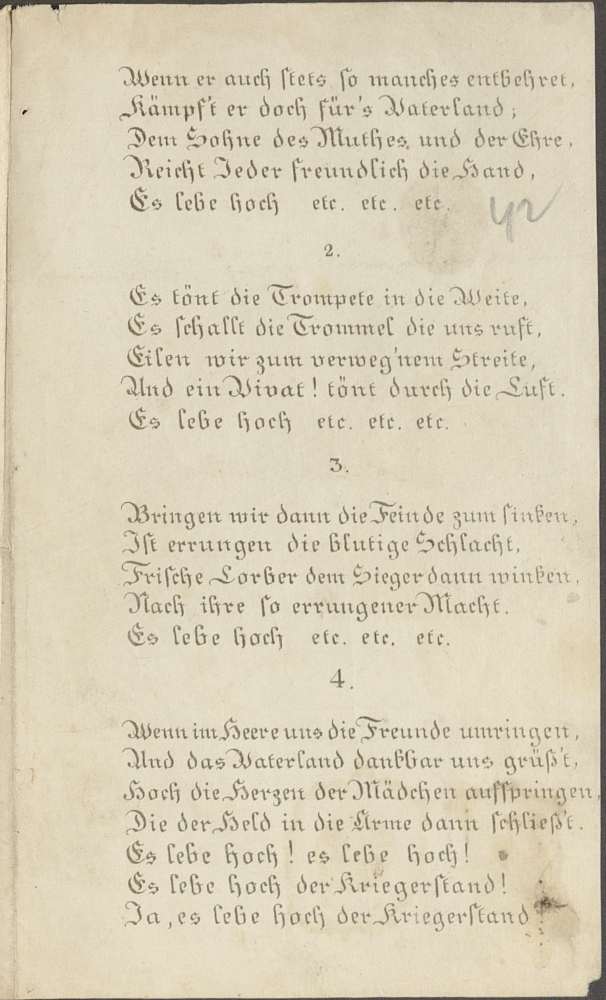 Wenn er auch stets so manches entbehret,
Kämpf't er doch für's Vaterland;
Dem Sohne des Muthes, und der Ehre,
Reicht Jeder freundlich die Hand,
Es lebe hoch etc. etc. etc.
42
2.
Es tönt die Trompete in die Weite,
Es schallt die Trommel die uns ruft,
Eilen wir zum verweg'nem Streite,
Und ein Vivat! tönt durch die Luft.
Es lebe hoch etc. etc. etc.
3.
Bringen wir dann die Feinde zum sinken,
Ist errungen die blutige Schlacht,
Frische Lorber dem Sieger dann winken,
Nach ihre so errungener Macht.
Es lebe hoch etc. etc. etc.
4.
Wenn im Heere uns die Freunde umringen,
Und das Vaterland dankbar uns grüß't,
Hoch die Herzen der Mädchen aufspringen,
Die der Held in die Arme dann schließt.
Es lebe hoch! es lebe hoch!
Es lebe hoch der Kriegerstand!
Ja, es lebe hoch der Kriegerstand!